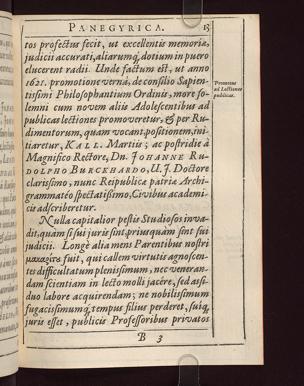 PANEGYRICA. 13
tos profectus fecit, ut excellentis memoriæ,
judicii accurati, aliarumq; dotium in puero
elucerent radii. Unde factum est, ut anno
1621. promotione vernâ, de consilio Sapien-
tissimi Philosophantium Ordinis, more so-
lemni cum novem aliis Adolescentibus ad
publicas lectiones promoveretur, & per Ru-
dimentorum, quam vocant, positionem, ini-
tiaretur, KALL. Martiis; ac postridie à
Magnifico Rectore, Dn. JOHANNE RU-
DOLPHO BURCKHARDO, U. J. Doctore
clarissimo, nunc Reipublicæ patriæ Archi-
grammatéo spectatissimo, Civibus academi-
cis adscriberetur.
Nulla capitalior pestis Studiosos inva-
dit, quàm si sui juris sint, priusquàm sint sui
judicii. Longè alia mens Parentibus nostri
μακαρίτου fuit, qui callem virtutis agnoscen-
tes difficultatum plenissimum, nec veneran-
dam scientiam in lecto molli jacére, sed assi-
duo labore acquirendam; ne nobilissimum
fugacissimumq; tempus filius perderet, suiq;
juris esset, publicis Professoribus privatos
B 3
Promotus
ad Lectiones
publicas.